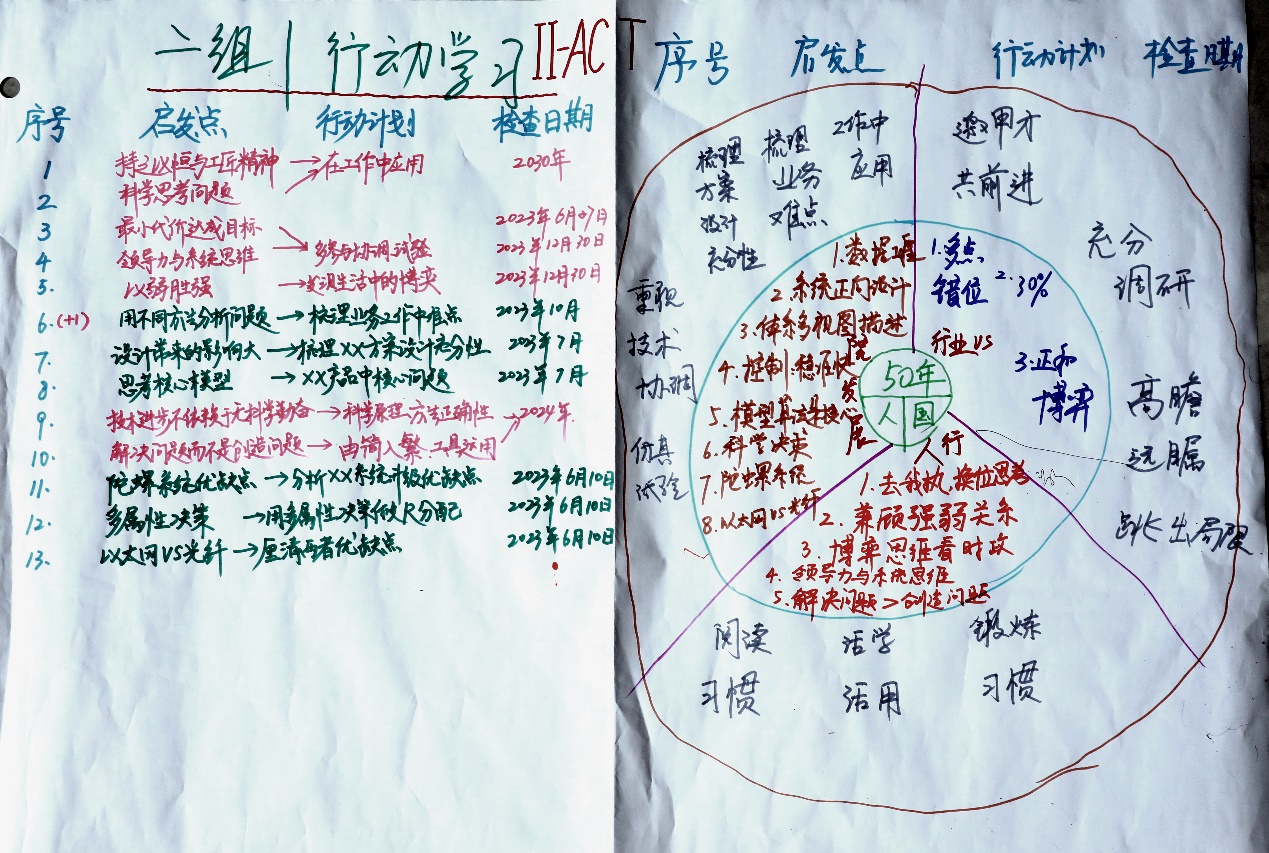 二组 | 行动学习 II-ACT
序号 启发点 行动计划 检查日期
1 持之以恒与工匠精神 →在工作中应用 2030年
2 科学思考问题
3 最小代价达成目标 2023年6月7日
4 领导力与系统思维 →多参与协调、试验 2023年12月30日
5. 以弱胜强 →发现生活中的博弈 2023年12月30日
6.(+1) 用不同方法分析问题 →梳理业务工作中难点 2023年10月
7. 设计带来的影响大 →梳理XX方案设计充分性 2023年7月
8. 思考核心模型 →XX产品中核心问题 2023年7月
9. 技术进步不体现于尤科学勤奋 →科学原理、方法正确性 →2024年
10. 解决问题而不是创造问题 →由简入繁、工具运用
11. 陀螺系统优缺点 →分析XX系统升级优缺点 2023年6月10日
12. 多属性决策 →用多属性决策做尺分配 2023年6月10日
13. 以太网VS光纤 →厘清两者优缺点 2023年6月10日
序号 启发点 行动计划 检查日期
梳理
方案
设计
充分性
梳理
业务
难点
工作中
应用
邀甲方
共前进
充分
调研
重视
技术
协调
仿真
试验
高瞻
远瞩
跳出局限
1.数据
2.系统正向设计
3.体系多视图描述
4.控制:稳准快
5.模型算法是核心
6.科学决策
7.陀螺系统
8.以太网VS光纤
院
发
展
1.多点
错位
2.30%
行业VS
3.正和
博弈
50年
人 国
人 行
1.去我执,换位思考
2.兼顾强弱关系
3.博弈思维看时政
4.领导力与系统思维
5.解决问题>创造问题
阅读
习惯
活学
活用
锻炼
习惯